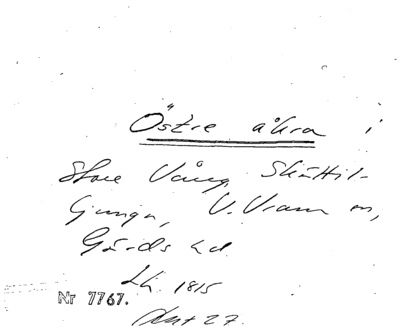 Östre åkra i
Store Vång, Skättil-
ljunga, V. Vram sn,
Gärds hd.
Lh. 1815
Nr 7767.
Akt 27.